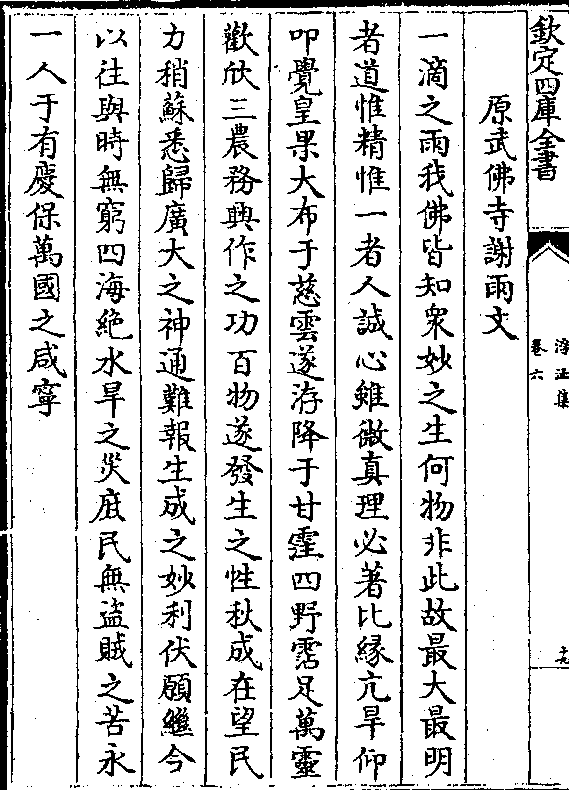 欽定四庫全書
浮沚集
卷六
十九
原武佛寺謝雨文
一滴之雨我佛皆知衆妙之生何物非此故最大最明
者道惟精惟一者人誠心雖微真理必著比縁亢旱仰
叩覺皇果大布于慈雲遂洊降于甘霔四野霑足萬靈
歡欣三農務興作之功百物遂發生之性秋成在望民
力稍蘇悉歸廣大之神通難報生成之妙利伏願繼今
以往與時無窮四海絶水旱之災庶民無盜賊之苦永
一人于有慶保萬國之咸寧